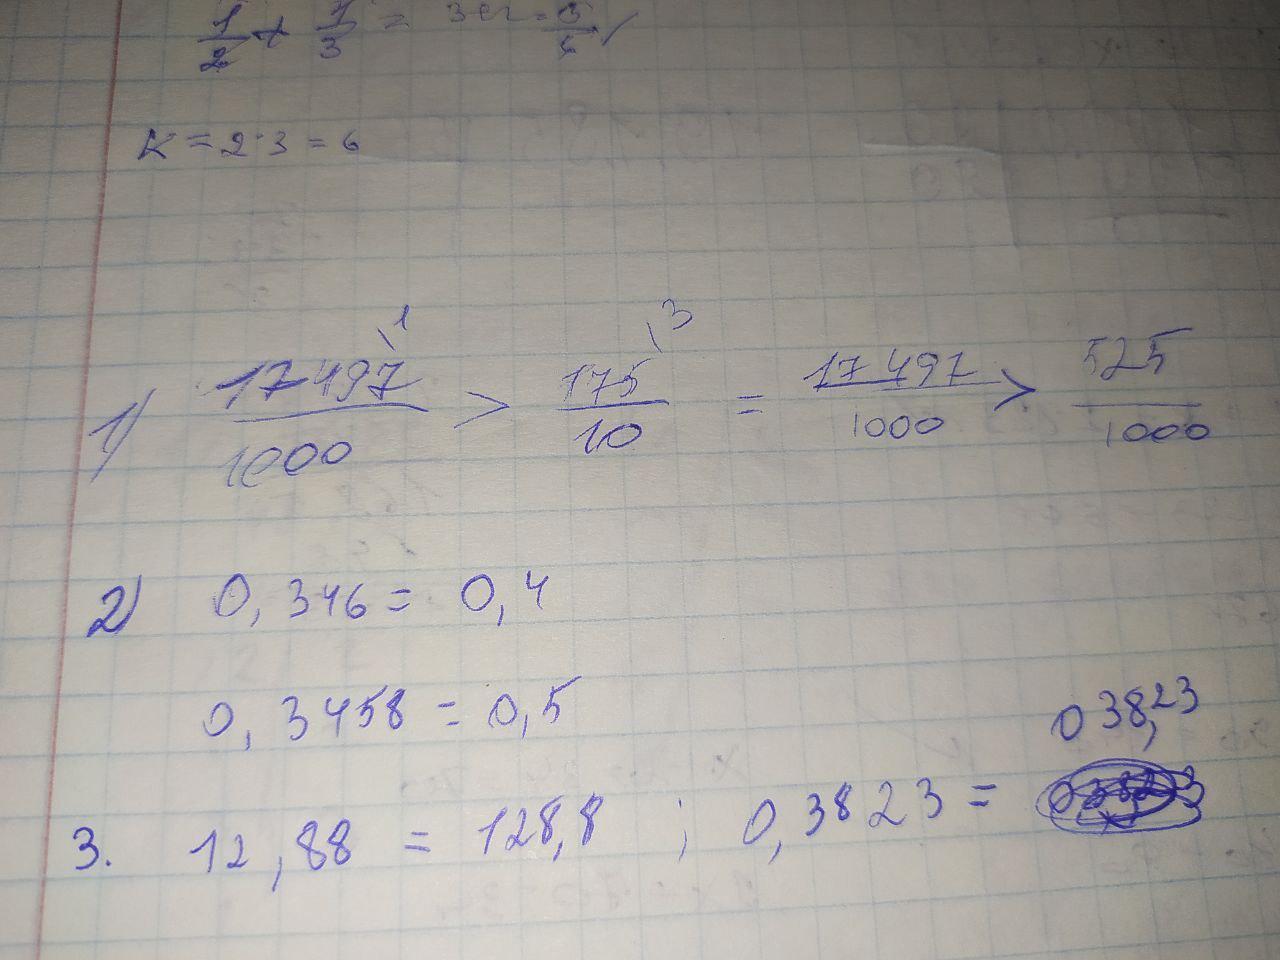 1/2 + 1/3 = = 5/6
K = 2·3 = 6
1) 17497/1000 \1 > 175/10 \3 = 17497/1000 > 525/1000
2) 0,346 = 0,4
0,3458 = 0,5
038,23
3. 12,88 = 128,8 ; 0,3823 =